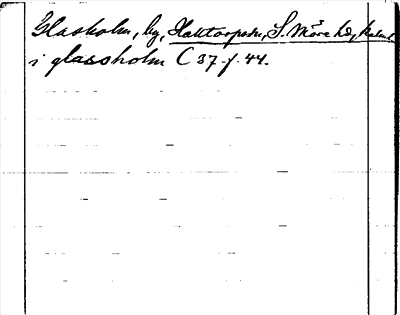 Glasholm, by, Halltorps sn, S. Möre hd, Kalmar
i glassholm C 37 f. 44.